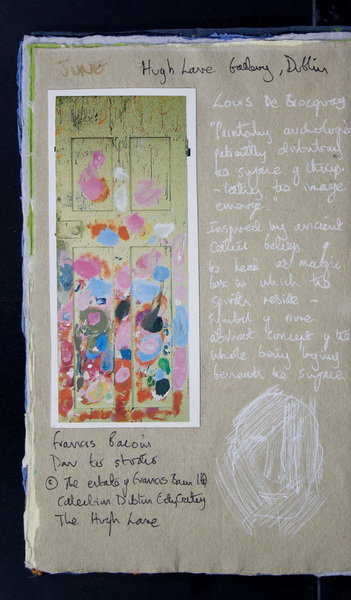 JUNE Hugh Lane Gallery, Dublin
Louis De Brocquay
"Painterly archaeologies
patiently
to surface of things
- letting the image
emerge"
Inspired by ancient
Celtic beliefs of
to head as magic
box in which the
spirit reside -
symbol of more
abstract concept of the
whole being lying
beneath the surface
Francis Bacon's
Door to studio
© The estate of Francis Bacon
Collection Dublin City Gallery
The Hugh Lane